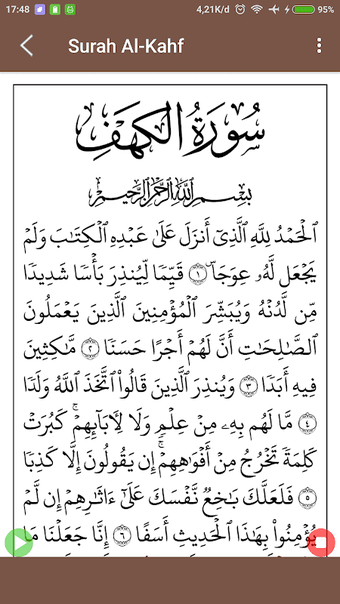 17:48 4,21K/d 95%
Surah Al-Kahf
سُورَةُ الكَهْفِ
بِسْمِ اللَّهِ الرَّحْمَٰنِ الرَّحِيمِ
الْحَمْدُ لِلَّهِ الَّذِي أَنزَلَ عَلَىٰ عَبْدِهِ الْكِتَابَ وَلَمْ
يَجْعَل لَّهُ عِوَجًا ۜ ١ قَيِّمًا لِّيُنذِرَ بَأْسًا شَدِيدًا
مِّن لَّدُنْهُ وَيُبَشِّرَ الْمُؤْمِنِينَ الَّذِينَ يَعْمَلُونَ
الصَّالِحَاتِ أَنَّ لَهُمْ أَجْرًا حَسَنًا ٢ مَّاكِثِينَ
فِيهِ أَبَدًا ٣ وَيُنذِرَ الَّذِينَ قَالُوا اتَّخَذَ اللَّهُ وَلَدًا
٤ مَّا لَهُم بِهِ مِنْ عِلْمٍ وَلَا لِآبَائِهِمْ ۚ كَبُرَتْ
كَلِمَةً تَخْرُجُ مِنْ أَفْوَاهِهِمْ ۚ إِن يَقُولُونَ إِلَّا كَذِبًا
٥ فَلَعَلَّكَ بَاخِعٌ نَّفْسَكَ عَلَىٰ آثَارِهِمْ إِن لَّمْ
يُؤْمِنُوا بِهَٰذَا الْحَدِيثِ أَسَفًا ٦ إِنَّا جَعَلْنَا مَا